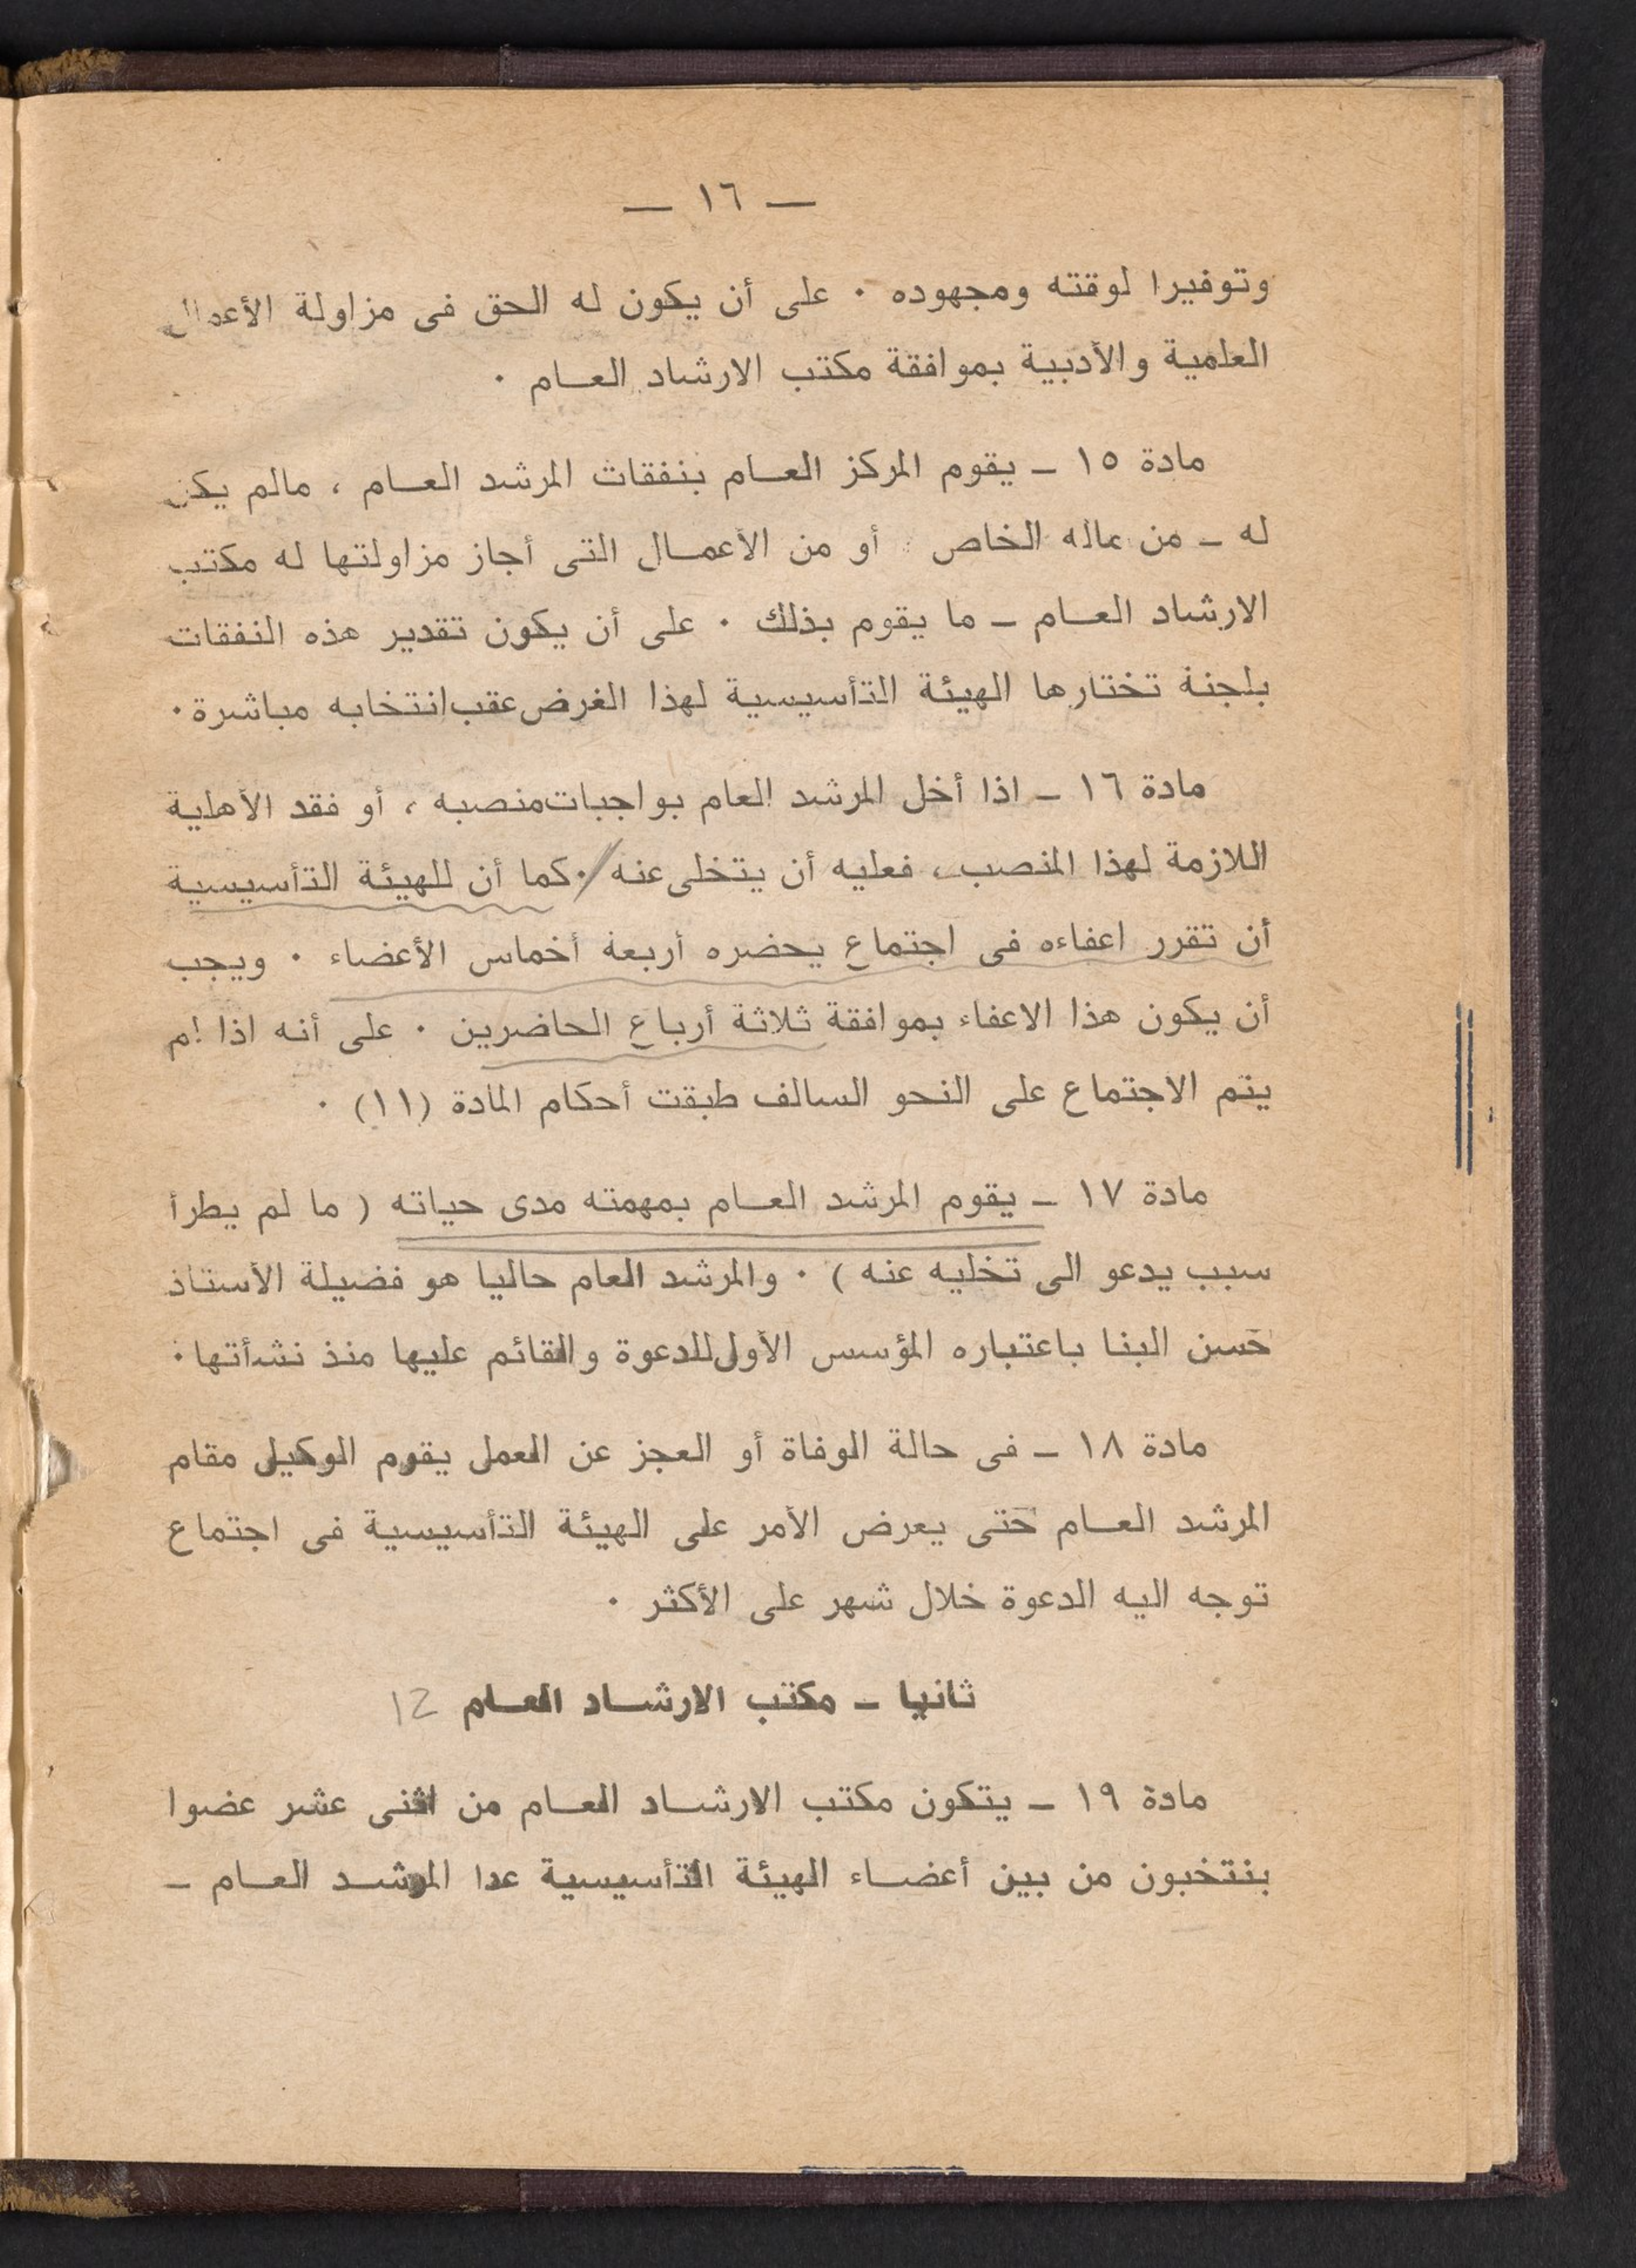 — ١٦ —
وتوفيرا لوقته ومجهوده . على أن يكون له الحق فى مزاولة الأعمال
العلمية والأدبية بموافقة مكتب الارشاد العام .
مادة ١٥ – يقوم المركز العام بنفقات المرشد العام ، مالم يكن
له – من ماله الخاص أو من الأعمال التى أجاز مزاولتها له مكتب
الارشاد العام – ما يقوم بذلك . على أن يكون تقدير هذه النفقات
بلجنة تختارها الهيئة التأسيسية لهذا الغرض عقب انتخابه مباشرة .
مادة ١٦ – اذا أخل المرشد العام بواجبات منصبه ، أو فقد الأهلية
اللازمة لهذا المنصب ، فعليه أن يتخلى عنه / . كما أن للهيئة التأسيسية
أن تقرر اعفاءه فى اجتماع يحضره أربعة أخماس الأعضاء . ويجب
أن يكون هذا الاعفاء بموافقة ثلاثة أرباع الحاضرين . على أنه اذا لم
يتم الاجتماع على النحو السالف طبقت أحكام المادة (١١) .
مادة ١٧ – يقوم المرشد العام بمهمته مدى حياته ( ما لم يطرأ
سبب يدعو الى تخليه عنه ) . والمرشد العام حاليا هو فضيلة الأستاذ
حسن البنا باعتباره المؤسس الأول للدعوة والقائم عليها منذ نشأتها .
مادة ١٨ – فى حالة الوفاة أو العجز عن العمل يقوم الوكيل مقام
المرشد العام حتى يعرض الأمر على الهيئة التأسيسية فى اجتماع
توجه اليه الدعوة خلال شهر على الأكثر .
ثانيا – مكتب الارشاد العام 12
مادة ١٩ – يتكون مكتب الارشاد العام من اثنى عشر عضوا
ينتخبون من بين أعضاء الهيئة التأسيسية عدا المرشد العام –